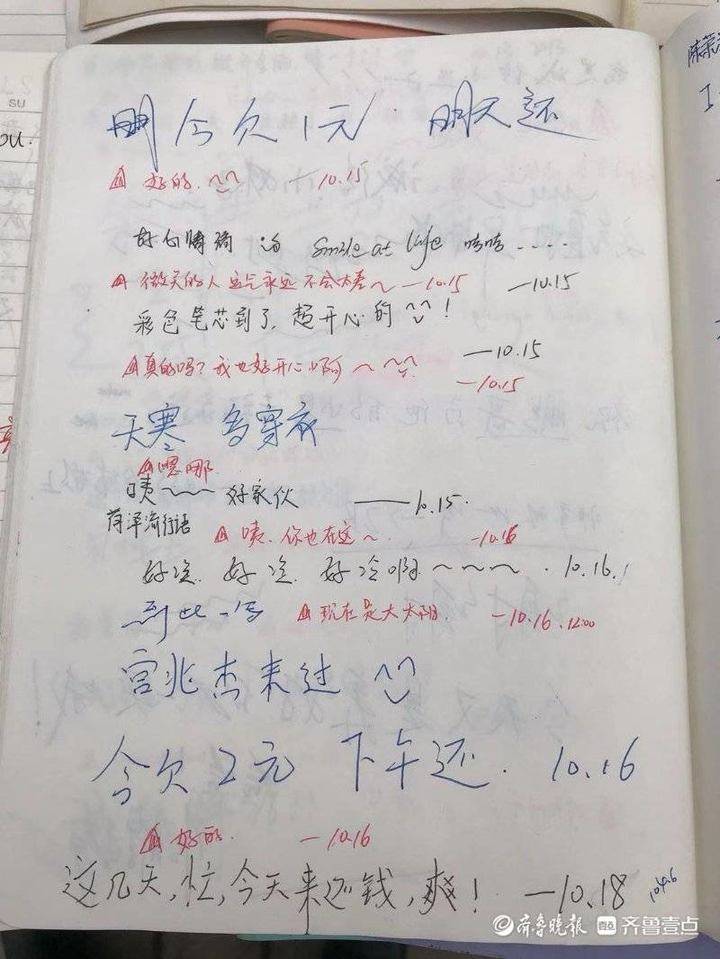 今欠1元 明天还
好的. 10.15
好心情 Smile at life 嘻嘻....
微笑的人运气永远不会太差~ —10.15 —10.15
彩色笔芯到了, 超开心的 !
—10.15
真的吗? 我也好开心啊~ —10.15
天寒 多穿衣
嗯哪
咦~~~ 好家伙 —10.15.
菏泽流行语 咦. 你也在这~ —10.16
好冷. 好冷. 好冷啊~~~ . 10.16.
到此一写 现在是大太阳. —10.16.12:00
宫兆杰来过
今欠2元 下午还. 10.16
好的. —10.16
这几天,忙,今天来还钱,爽! —10.18
齐鲁晚报 齐鲁壹点
su
ou.